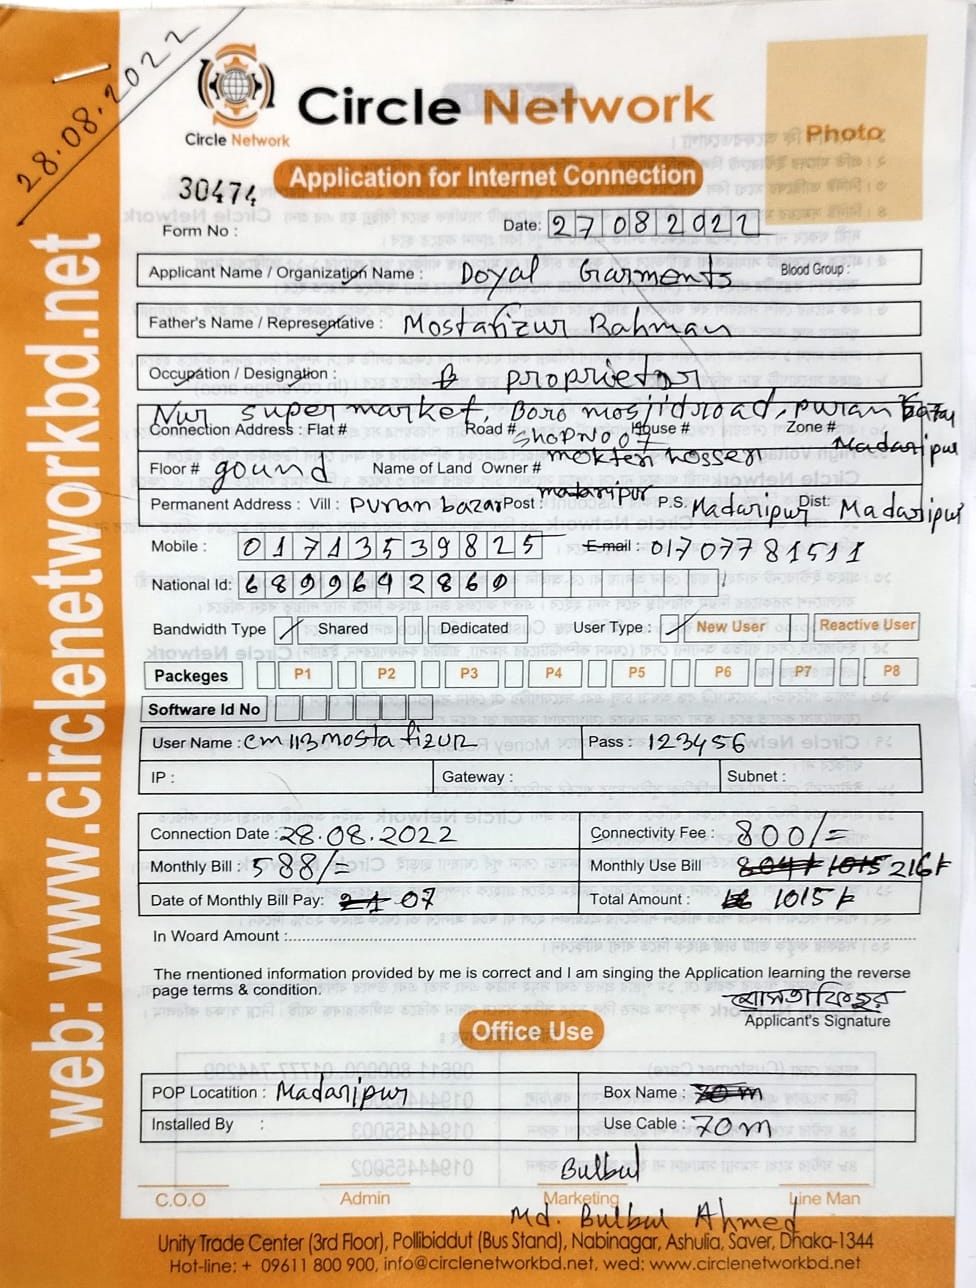 28.08.2022
Circle Network
Circle Network
Photo
Application for Internet Connection
30474
Form No :
Date: 27082022
Applicant Name / Organization Name : Doyal Garments Blood Group :
Father's Name / Representative : Mostafizur Rahman
Occupation / Designation : proprietor
Nur super market, Boro mosjidroad, puran bazar
Connection Address : Flat # Road # House # Zone #
Shop No 07 Madaripur
Floor # gound Name of Land Owner # mokter hossen
Permanent Address : Vill : puran bazar Post : madaripur P.S. Madaripur Dist: Madaripur
Mobile : 01713539825 E-mail : 01707781511
National Id: 6899642860
Bandwidth Type Shared Dedicated User Type : New User Reactive User
Packeges P1 P2 P3 P4 P5 P6 P7 P8
Software Id No
User Name : cm113mostafizur Pass : 123456
IP : Gateway : Subnet :
Connection Date : 28.08.2022 Connectivity Fee : 800/=
Monthly Bill : 588/= Monthly Use Bill 804 1015 216
Date of Monthly Bill Pay: 07 Total Amount : 1015
In Woard Amount :
The mentioned information provided by me is correct and I am singing the Application learning the reverse
page terms & condition.
মোসতাফিজুর
Applicant's Signature
Office Use
POP Locatition : Madaripur Box Name : 70m
Installed By : Use Cable : 70m
Bulbul
C.O.O Admin Marketing Line Man
Md. Bulbul Ahmed
Unity Trade Center (3rd Floor), Pollibiddut (Bus Stand), Nabinagar, Ashulia, Saver, Dhaka-1344
Hot-line: + 09611 800 900, info@circlenetworkbd.net, wed: www.circlenetworkbd.net
web: www.circlenetworkbd.net